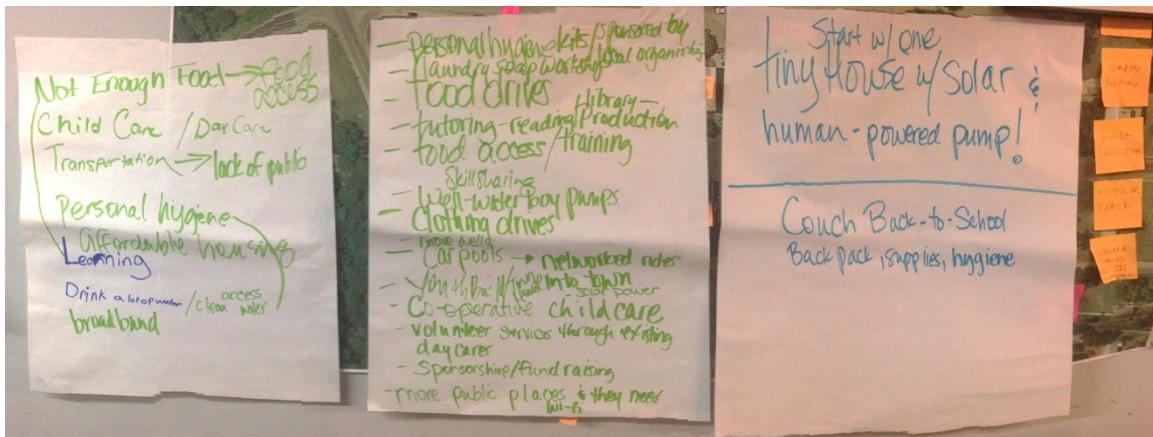 Not Enough Food → food access
Child Care / Day Care
Transportation → lack of public
personal hygiene
affordable housing
Learning
Drink a lot of water / access clean water
broadband
- personal hygiene kits / sponsored by local organizing
- laundry soap workshop
- food drives
- tutoring - reading / library - production
- food access / training
Skillsharing
- Well-water Boy pumps
- Clothing drives
- more wells
- Car pools → networked rides into town
- Youthbuild / solar power
- Co-operative childcare
- volunteer services through existing
daycares
- Sponsorship/Fundraising
- more public places & they need
wi-fi
Start w/ one
tiny House w/ Solar &
human-powered pump!
Couch Back-to-School
Back pack, supplies, hygiene